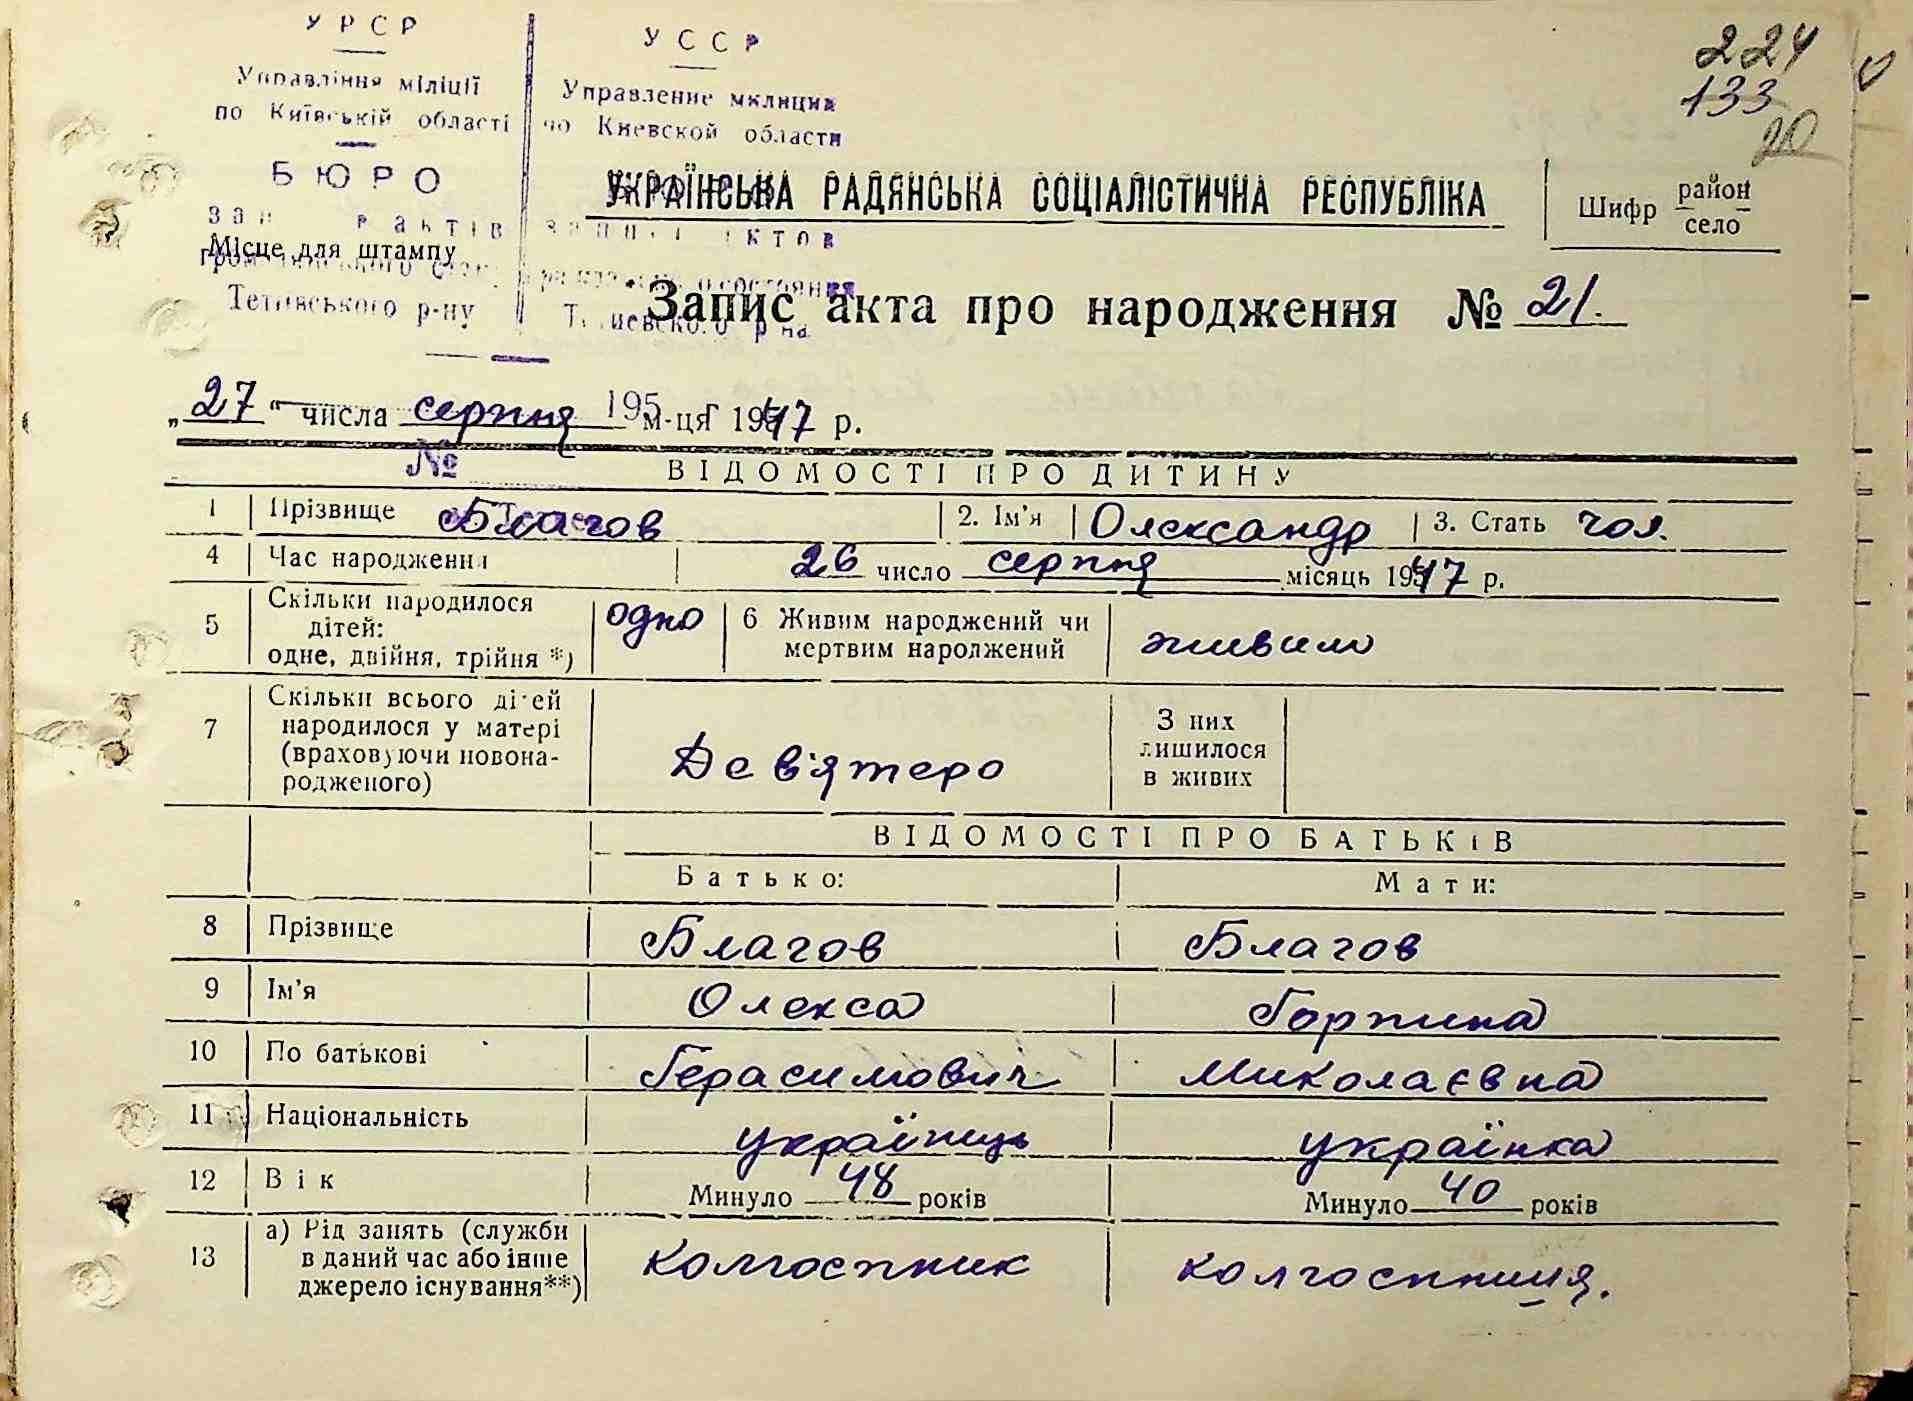 УРСР
Управління міліції
по Київській області
БЮРО
актів
Місце для штампу
Тетіївського р-ну
УССР
Управление милиции
по Киевской области
записи актов
224
133
20
УКРАЇНСЬКА РАДЯНСЬКА СОЦІАЛІСТИЧНА РЕСПУБЛІКА
Шифр район
село
Запис акта про народження № 21.
„27“ числа серпня м-ця 1947 р.
195 г
№
ВІДОМОСТІ ПРО ДИТИНУ
1 Прізвище Благов 2. Ім'я Олександр 3. Стать чол.
4 Час народження 26 число серпня місяць 1947 р.
5 Скільки народилося
дітей:
одне, двійня, трійня *)
одно
6 Живим народжений чи
мертвим народжений
живим
7 Скільки всього дітей
народилося у матері
(враховуючи новона-
родженого)
Дев'ятеро
З них
лишилося
в живих
ВІДОМОСТІ ПРО БАТЬКІВ
Батько: Мати:
8 Прізвище Благов Благов
9 Ім'я Олекса Горпина
10 По батькові Герасимович Миколаєвна
11 Національність українець українка
12 Вік Минуло 48 років Минуло 40 років
13 а) Рід занять (служби
в даний час або інше
джерело існування**)
колгоспник колгоспниця.